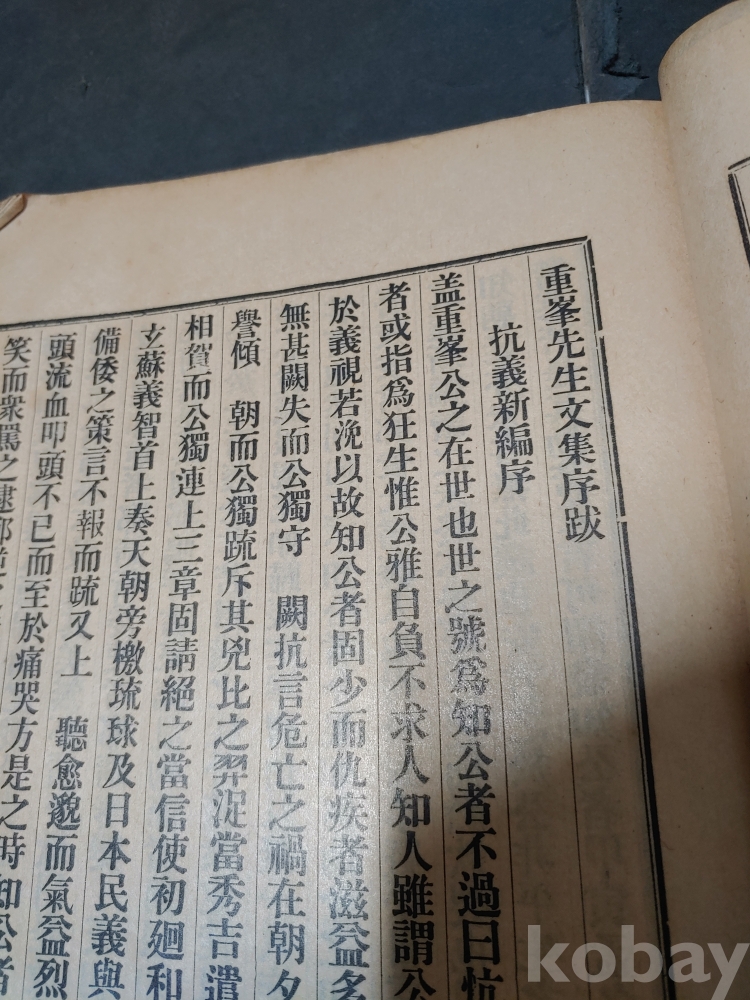 重峯先生文集序跋
抗義新編序
盖重峯公之在世也世之號爲知公者不過曰忼
者或指爲狂生惟公雅自負不求人知人雖謂公
於義視若浼以故知公者固少而仇疾者滋益多
無甚闕失而公獨守 闕抗言危亡之禍在朝夕
譽傾 朝而公獨疏斥其兇比之羿浞當秀吉遣
相賀而公獨連上三章固請絕之當信使初廻和
玄蘇義智首上奏天朝旁檄琉球及日本民義與
備倭之策言不報而疏又上 聽愈邈而氣益烈
頭流血叩頭不已而至於痛哭方是之時知公者
笑而衆罵之逮
kobay